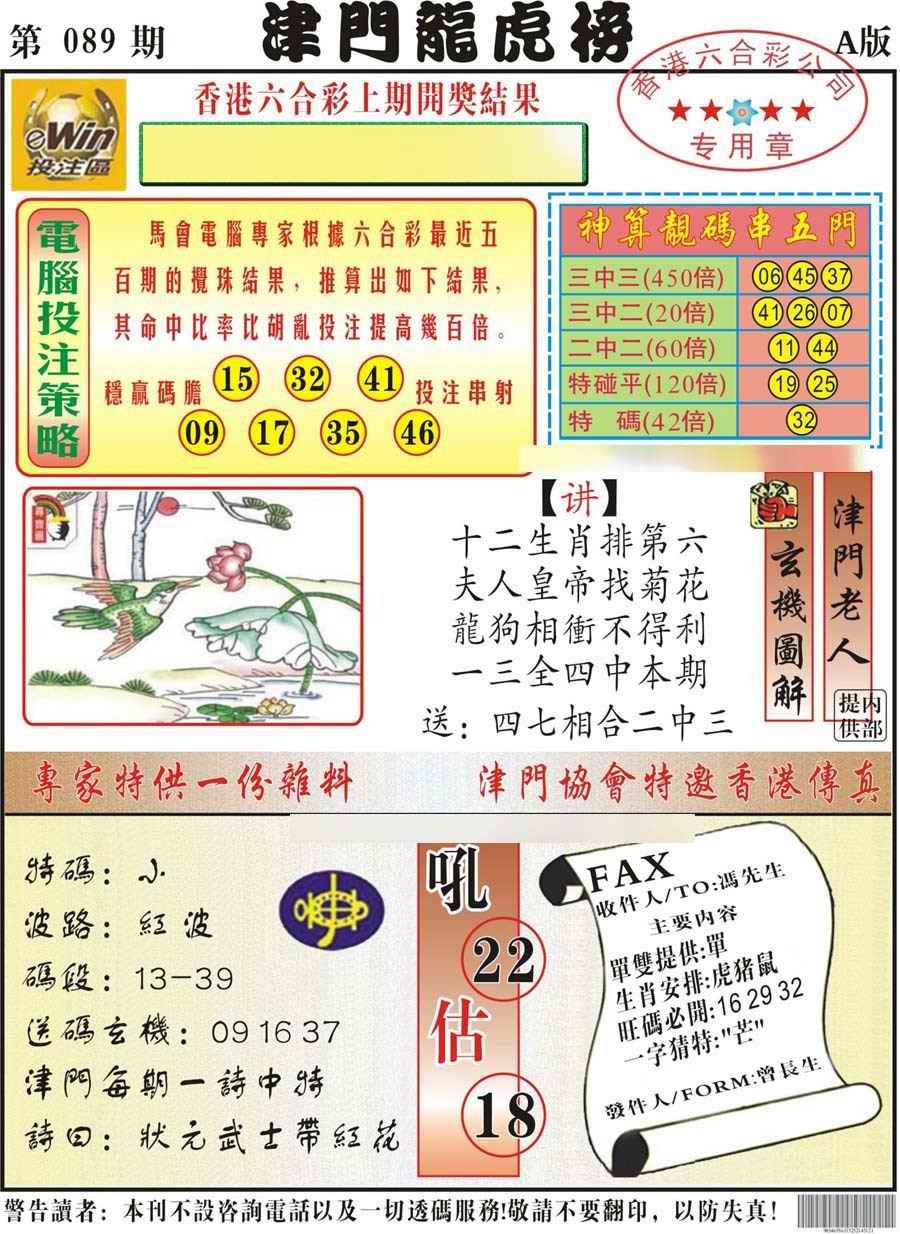 第 089 期
津門龍虎榜
A版
香港六合彩公司
专用章
eWin
投注區
香港六合彩上期開獎結果
電腦投注策略
馬會電腦專家根據六合彩最近五
百期的攪珠結果，推算出如下結果，
其命中比率比胡亂投注提高幾百倍。
穩贏碼膽 15 32 41 投注串射
09 17 35 46
神算靚碼串五門
三中三(450倍) 06 45 37
三中二(20倍) 41 26 07
二中二(60倍) 11 44
特碰平(120倍) 19 25
特 碼(42倍) 32
【讲】
十二生肖排第六
夫人皇帝找菊花
龍狗相衝不得利
一三全四中本期
送：四七相合二中三
玄機圖解
津門老人
内部提供
專家特供一份雜料
津門協會特邀香港傳真
特碼：小
波路：紅波
碼段：13-39
送碼玄機：09 16 37
津門每期一詩中特
詩曰：狀元武士帶紅花
吼
22
估
18
FAX
收件人/TO:馮先生
主要内容
單雙提供:單
生肖安排:虎猪鼠
旺碼必開:16 29 32
一字猜特:"芒"
發件人/FORM:曾長生
警告讀者：本刊不設咨詢電話以及一切透碼服務!敬請不要翻印，以防失真！